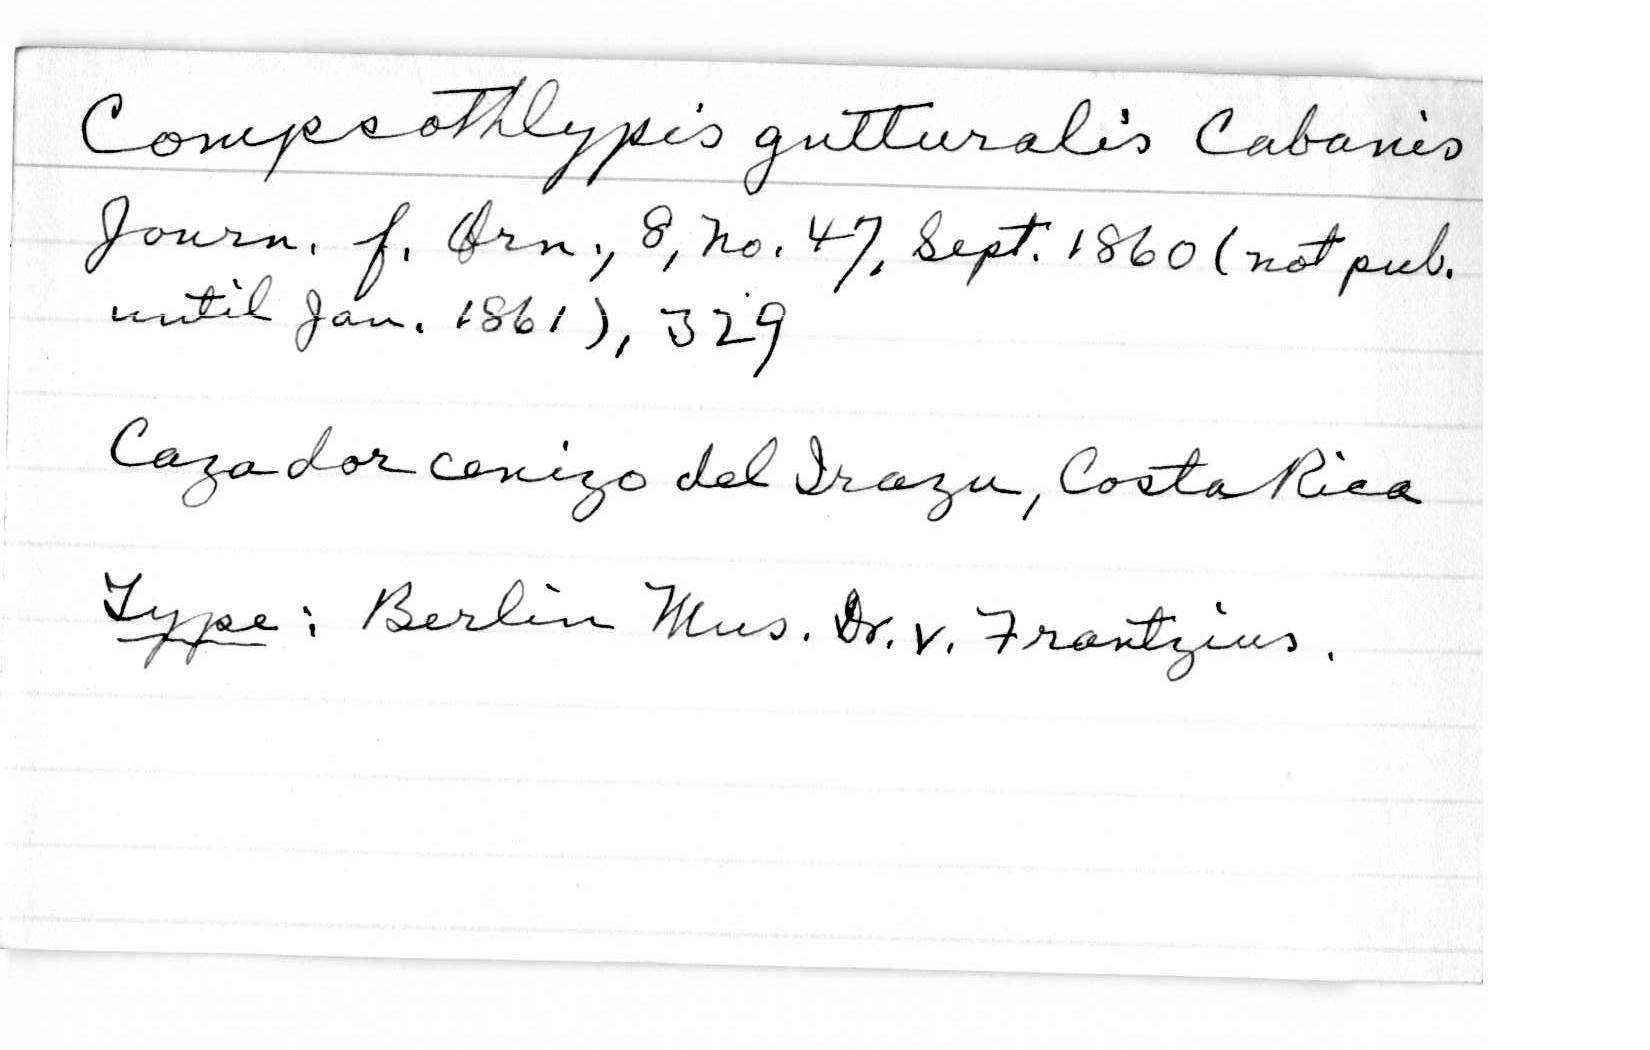 Compsothlypis gutturalis Cabanis
Journ. f. Orn., 8, no. 47, Sept. 1860 (not pub.
until Jan. 1861), 329
Cazador cenizo del Irazu, Costa Rica
Type: Berlin Mus. Dr. v. Frantzius.